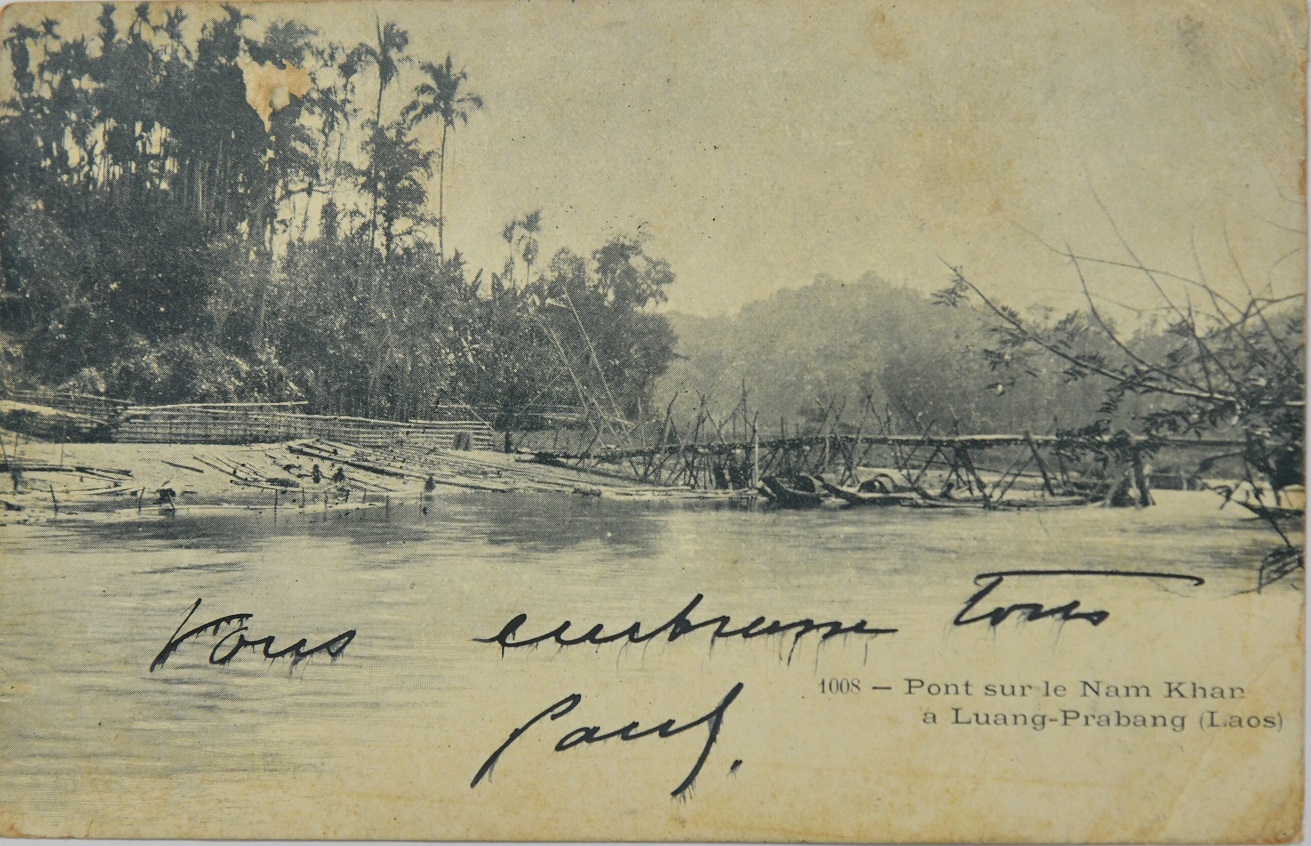 Vous embrasse Tous
Paul.
1008 — Pont sur le Nam Khan
a Luang-Prabang (Laos)